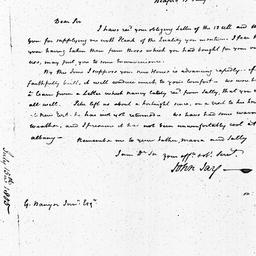 Dear Sir
I have recd. your obliging Letter of the 12 ult. and
you for supplying me with Plank of the Quality you mention. I fear
your having taken them from those which you had bought for your
use, may put you to some Inconvenience.
By this time I suppose your new House is advancing rapidly - if
faithfully built, it will conduce much to your comfort - we were
to learn from a Letter which Nancy lately recd. from Sally, that you
all well. Peter left us about a fortnight since, on a visit to his
- New York. he has not yet returned - we have had some warm
weather, and I presume it has not been uncomfortably cool at
albany -
Remember me to your Father, Maria and Sally
I am Dr. Sir your affte. & obt. Servt.
John Jay
G. Banyer Junr. Esqr.
July 15th. 1805